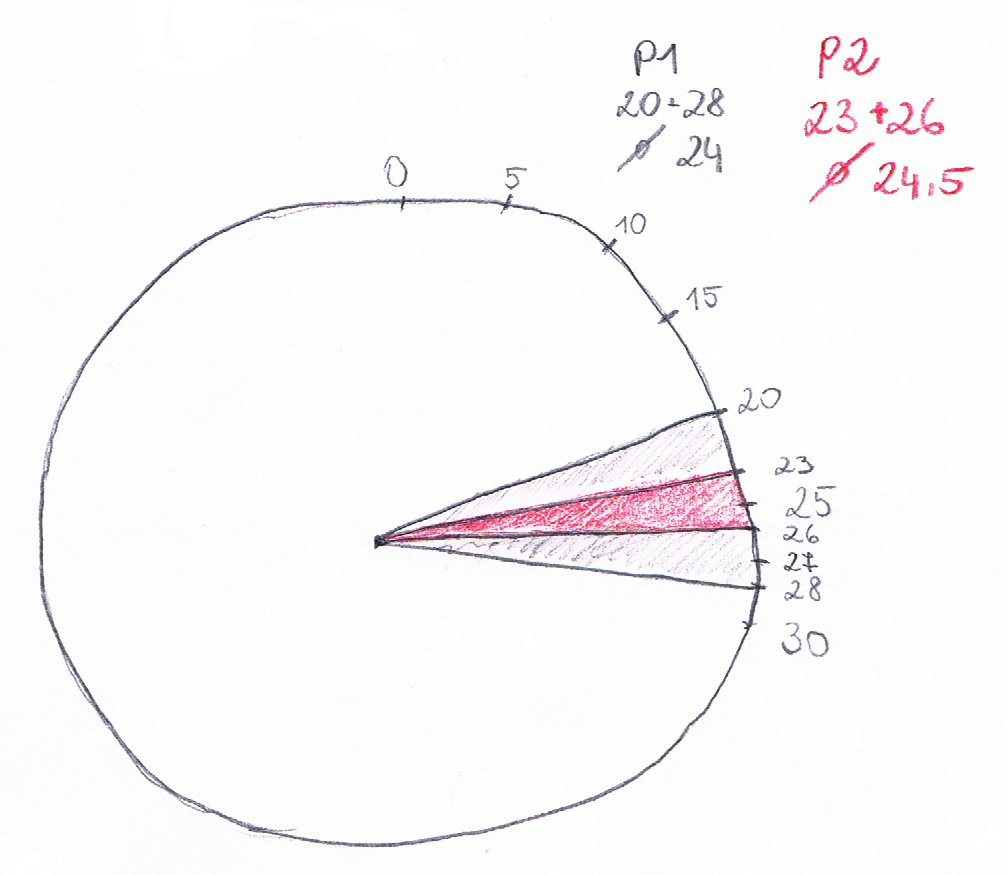 P1
20-28
ø 24
P2
23+26
ø 24,5
0
5
10
15
20
23
25
26
27
28
30